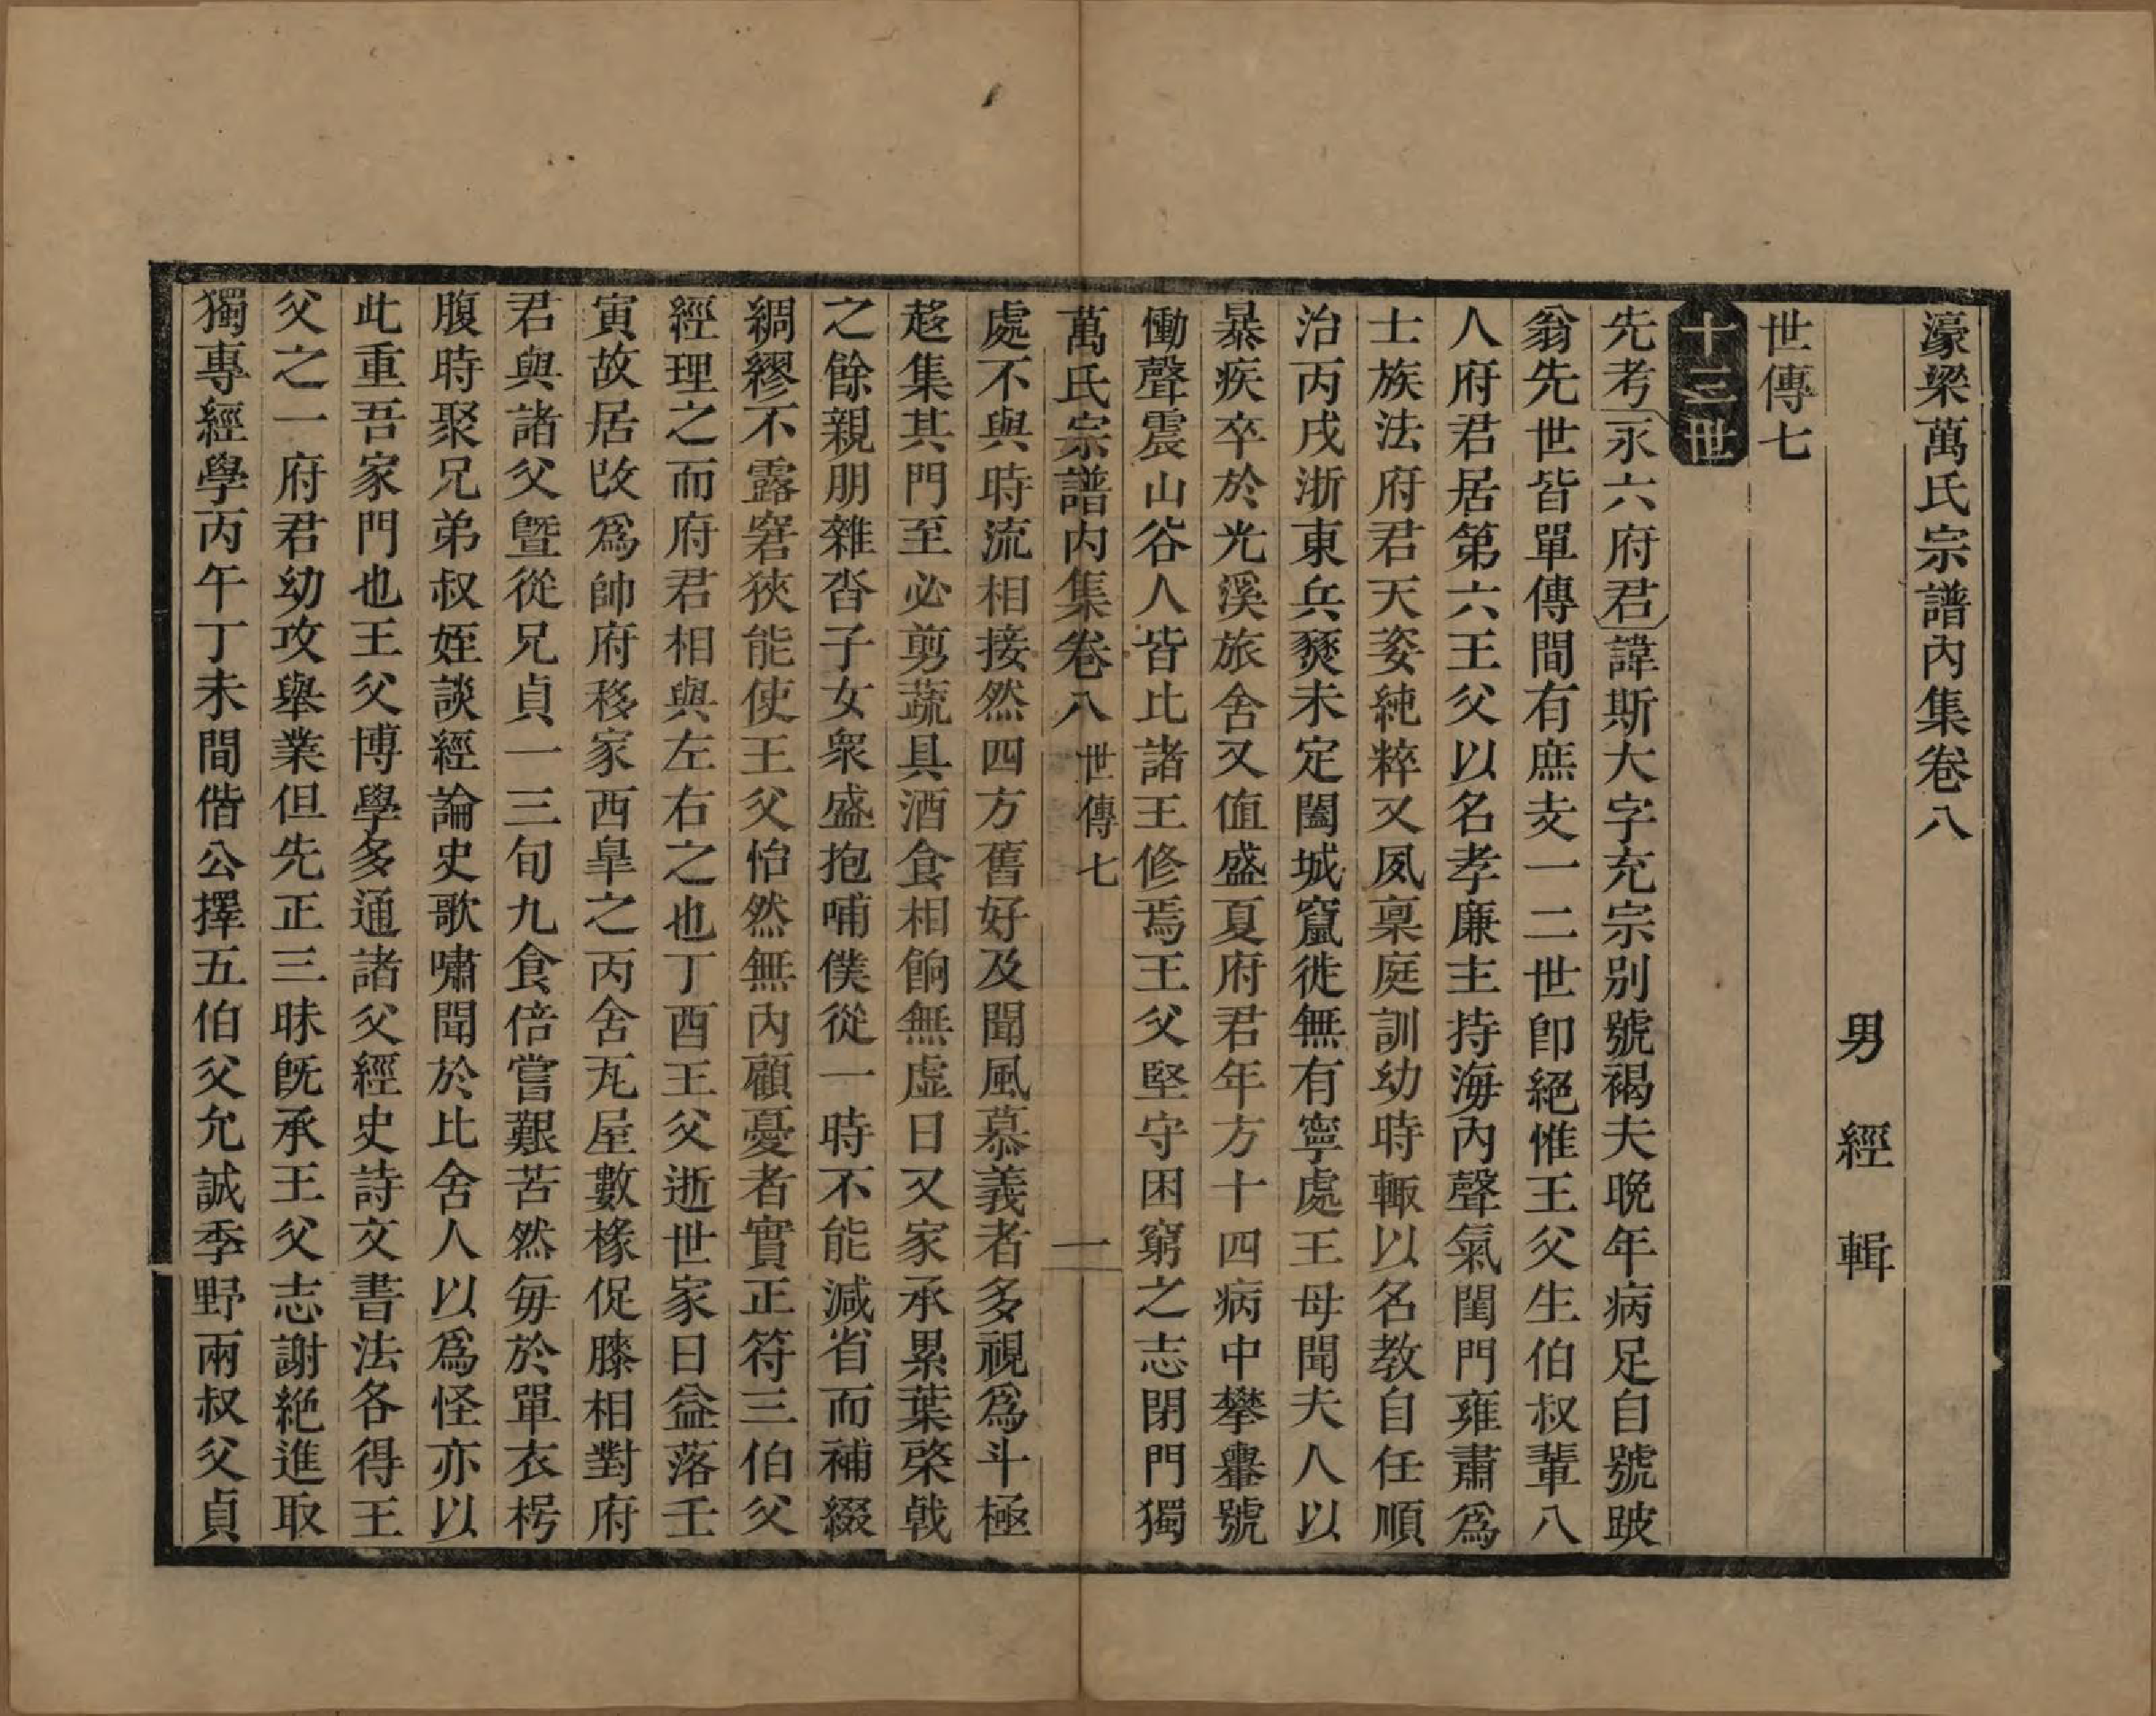 濠梁萬氏宗譜內集卷八
男經輯
世傳七
十三世
先考永六府君諱斯大字充宗别號褐夫晚年病足自號跛
翁先世皆單傳間有庶支一二世卽絕惟王父生伯叔輩八
人府君居第六王父以名孝廉主持海內聲氣閨門雍肅爲
士族法府君天姿純粹又夙稟庭訓幼時輙以名教自任順
治丙戌浙東兵燹未定闔城竄徙無有寧處王母聞夫人以
暴疾卒於光溪旅舍又值盛夏府君年方十四病中攀轝號
慟聲震山谷人皆比諸王修焉王父堅守困窮之志閉門獨
萬氏宗譜内集卷八 世傳七 一
處不與時流相接然四方舊好及聞風慕義者多視爲斗極
趍集其門至必剪蔬具酒食相餉無虛日又家承累葉棨戟
之餘親朋雜沓子女衆盛抱哺僕從一時不能減省而補綴
綢繆不露窘狹能使王父怡然無內顧憂者實正符三伯父
經理之而府君相與左右之也丁酉王父逝世家日益落壬
寅故居改爲帥府移家西臯之丙舍瓦屋數椽促膝相對府
君與諸父曁從兄貞一三旬九食倍嘗艱苦然毎於單衣枵
腹時聚兄弟叔姪談經論史歌嘯聞於比舍人以爲怪亦以
此重吾家門也王父博學多通諸父經史詩文書法各得王
父之一府君幼攻舉業但先正三昧旣承王父志謝絶進取
獨專經學丙午丁未間偕公擇五伯父允誠季野兩叔父貞